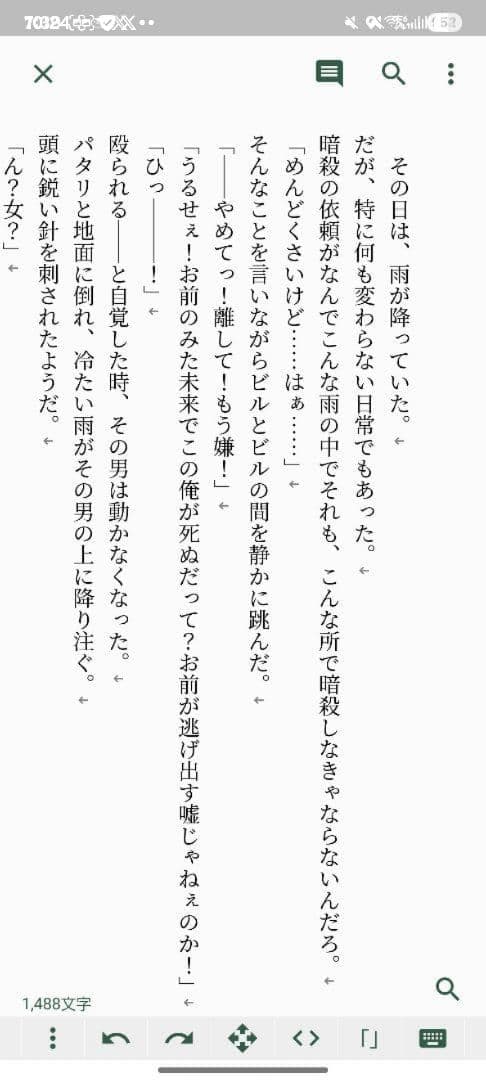 その日は、雨が降っていた。←
だが、特に何も変わらない日常でもあった。←
暗殺の依頼がなんでこんな雨の中でそれも、こんな所で暗殺しなきゃならないんだろ。←
「めんどくさいけど……はぁ……」←
そんなことを言いながらビルとビルの間を静かに跳んだ。←
「――やめてっ！離して！もう嫌！」←
「うるせぇ！お前のみた未来でこの俺が死ぬだって？お前が逃げ出す嘘じゃねぇのか！」←
「ひっ――――！」←
殴られる――と自覚した時、その男は動かなくなった。←
パタリと地面に倒れ、冷たい雨がその男の上に降り注ぐ。←
頭に鋭い針を刺されたようだ。←
「ん？女？」←
1,488文字
「」